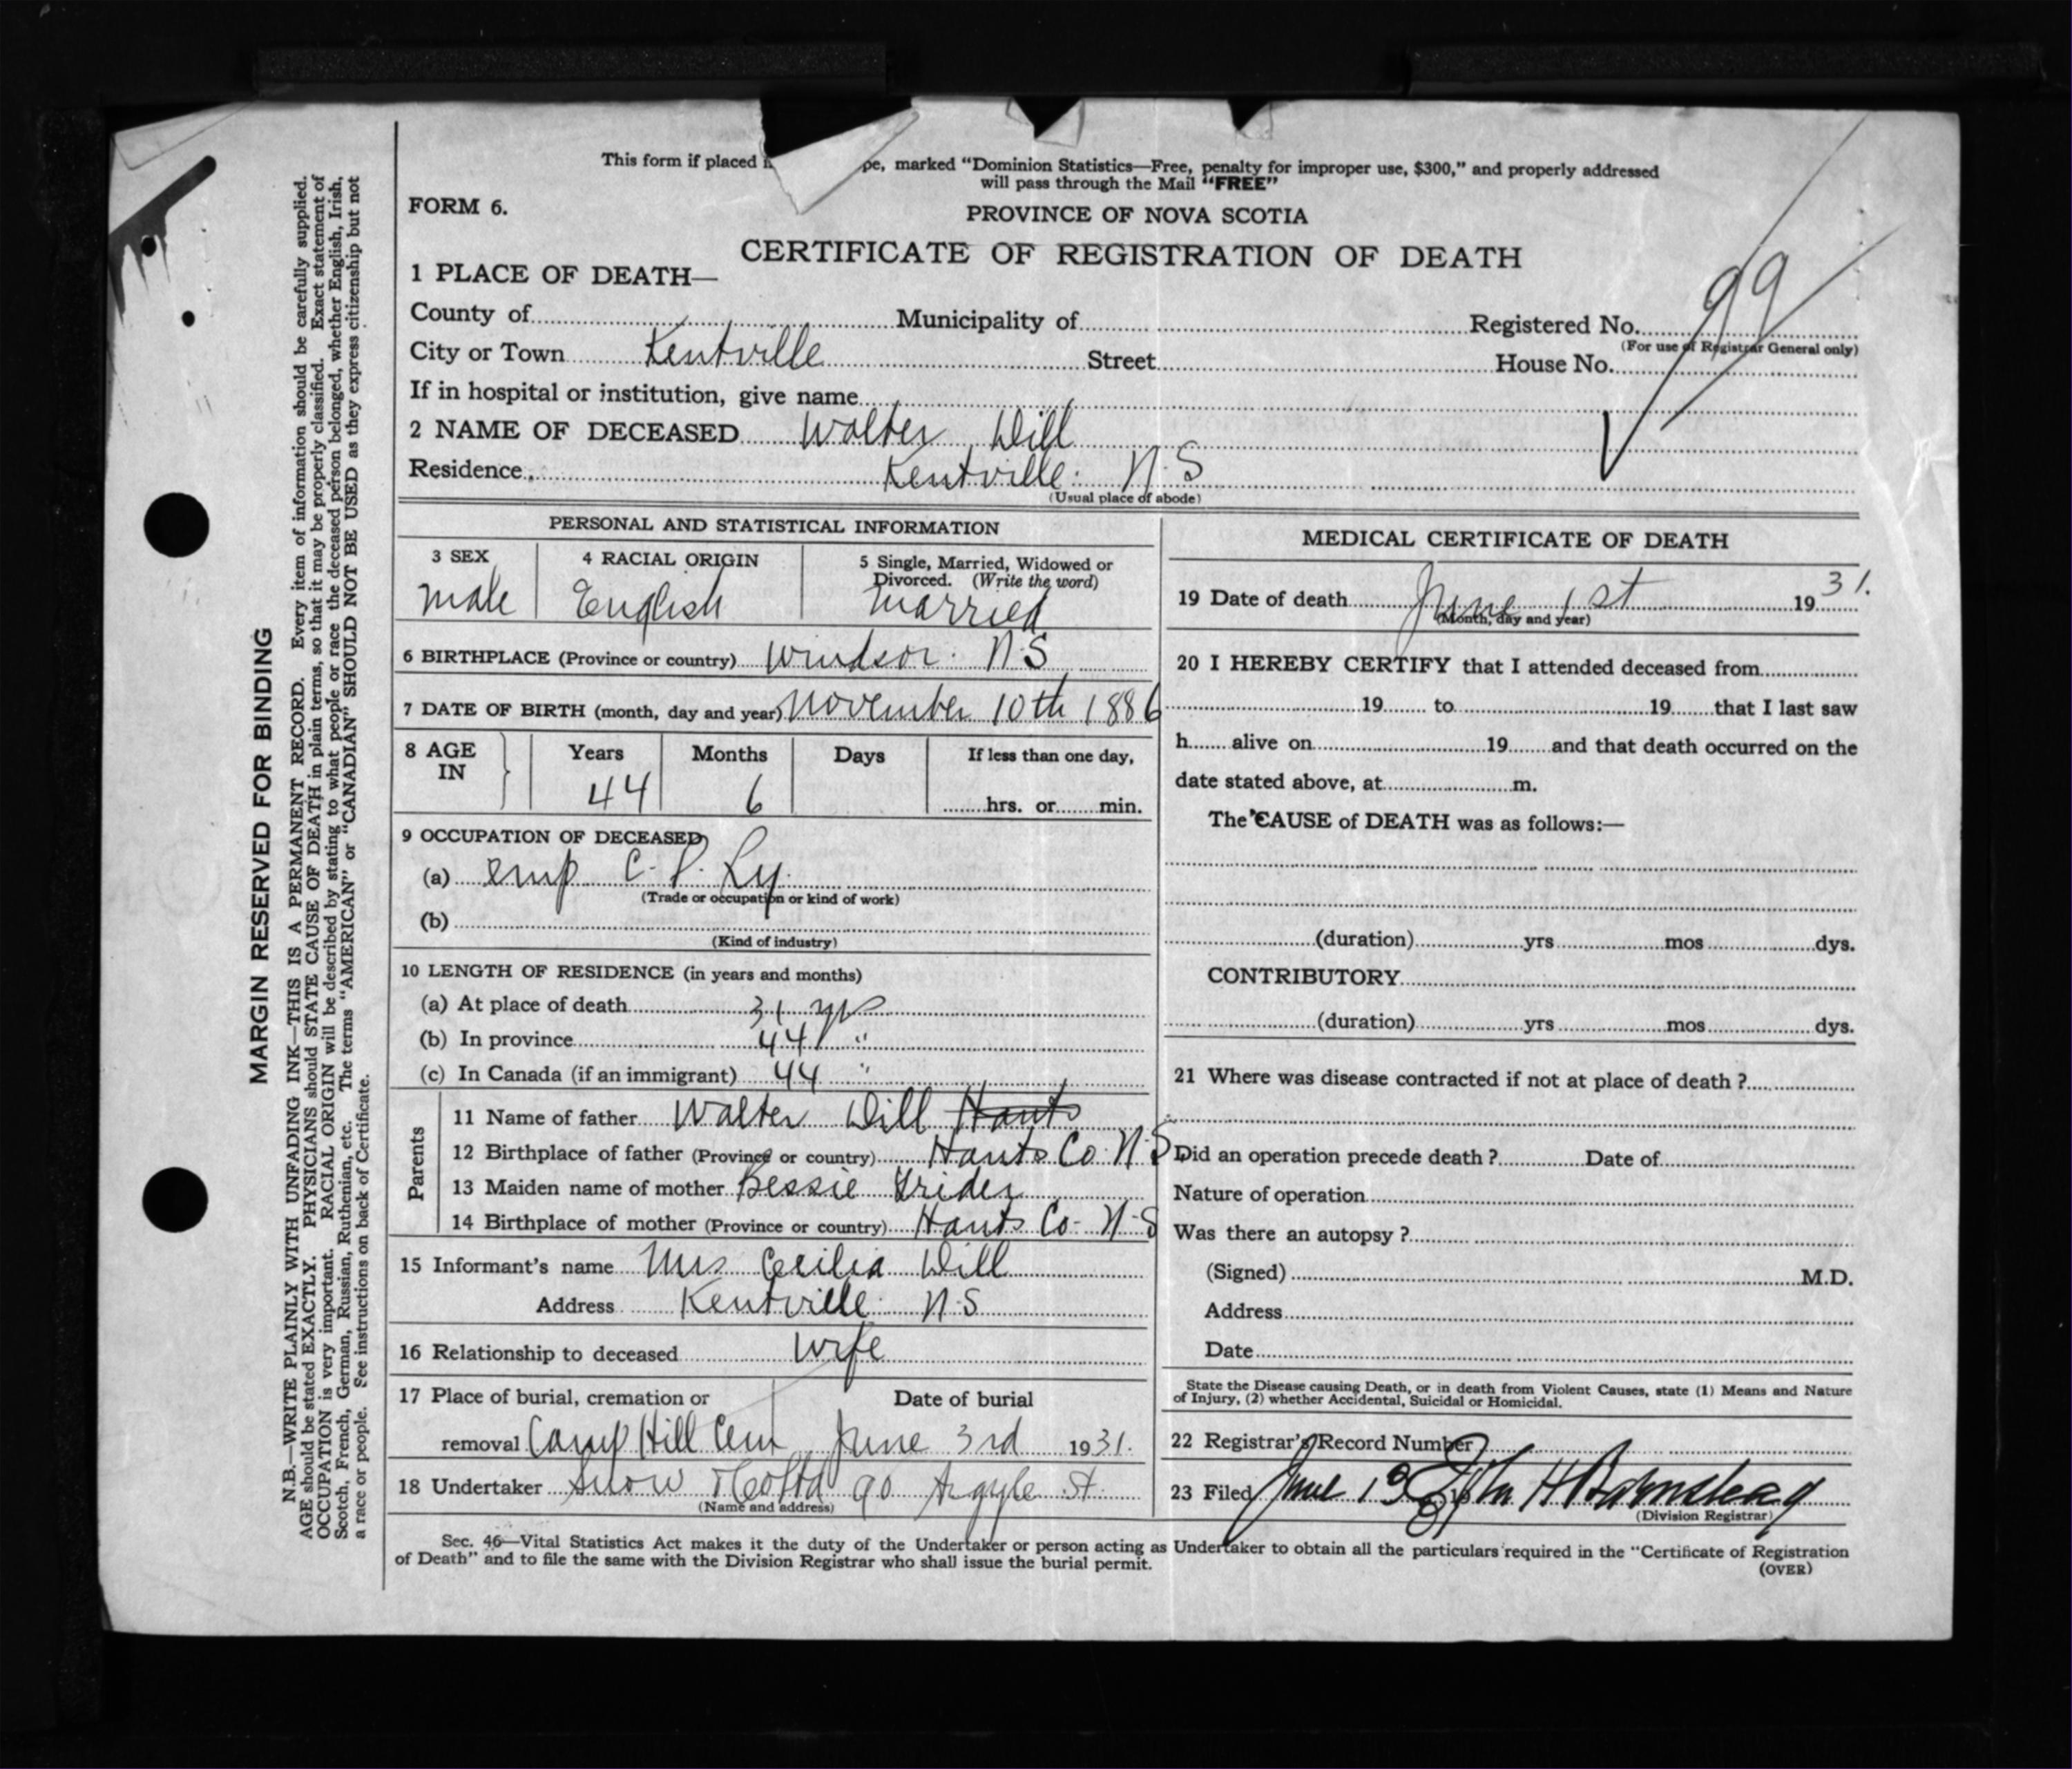 This form if placed pe, marked "Dominion Statistics—Free, penalty for improper use, $300," and properly addressed
will pass through the Mail "FREE"
FORM 6.
PROVINCE OF NOVA SCOTIA
CERTIFICATE OF REGISTRATION OF DEATH
1 PLACE OF DEATH—
County of Municipality of Registered No. 99
(For use of Registrar General only)
City or Town Kentville Street House No.
If in hospital or institution, give name
2 NAME OF DECEASED Walter Dill
Residence Kentville. N.S
(Usual place of abode)
PERSONAL AND STATISTICAL INFORMATION
3 SEX 4 RACIAL ORIGIN 5 Single, Married, Widowed or
Divorced. (Write the word)
Male English Married
6 BIRTHPLACE (Province or country) Windsor. N.S
7 DATE OF BIRTH (month, day and year) November 10th 1886
8 AGE IN Years Months Days If less than one day,
44 6 hrs. or min.
9 OCCUPATION OF DECEASED
(a) emp C.P. Ry.
(Trade or occupation or kind of work)
(b)
(Kind of industry)
10 LENGTH OF RESIDENCE (in years and months)
(a) At place of death 31 yrs
(b) In province 44 "
(c) In Canada (if an immigrant) 44 "
Parents
11 Name of father Walter Dill Hants
12 Birthplace of father (Province or country) Hants Co. N.S
13 Maiden name of mother Bessie
14 Birthplace of mother (Province or country) Hants Co- N-S
15 Informant's name Mrs Cecilia Dill
Address Kentville. N.S
16 Relationship to deceased wife
17 Place of burial, cremation or Date of burial
removal Camp Hill Cem June 3rd 1931.
18 Undertaker Snow & Co Ltd 90 Argyle St.
(Name and address)
MEDICAL CERTIFICATE OF DEATH
19 Date of death June 1st 1931.
(Month, day and year)
20 I HEREBY CERTIFY that I attended deceased from
19 to 19 that I last saw
h alive on 19 and that death occurred on the
date stated above, at m.
The CAUSE of DEATH was as follows:—
(duration) yrs mos dys.
CONTRIBUTORY
(duration) yrs mos dys.
21 Where was disease contracted if not at place of death ?
Did an operation precede death ? Date of
Nature of operation
Was there an autopsy ?
(Signed) M.D.
Address
Date
State the Disease causing Death, or in death from Violent Causes, state (1) Means and Nature
of Injury, (2) whether Accidental, Suicidal or Homicidal.
22 Registrar's Record Number
23 Filed June
(Division Registrar)
Sec. 46—Vital Statistics Act makes it the duty of the Undertaker or person acting as Undertaker to obtain all the particulars required in the "Certificate of Registration
of Death" and to file the same with the Division Registrar who shall issue the burial permit.
(OVER)
MARGIN RESERVED FOR BINDING
N.B.—WRITE PLAINLY WITH UNFADING INK—THIS IS A PERMANENT RECORD. Every item of information should be carefully supplied.
AGE should be stated EXACTLY. PHYSICIANS should STATE CAUSE OF DEATH in plain terms, so that it may be properly classified. Exact statement of
OCCUPATION is very important. RACIAL ORIGIN will be described by stating to what people or race the deceased person belonged, whether English, Irish,
Scotch, French, German, Russian, Ruthenian, etc. The terms "AMERICAN" or "CANADIAN" SHOULD NOT BE USED as they express citizenship but not
a race or people. See instructions on back of Certificate.